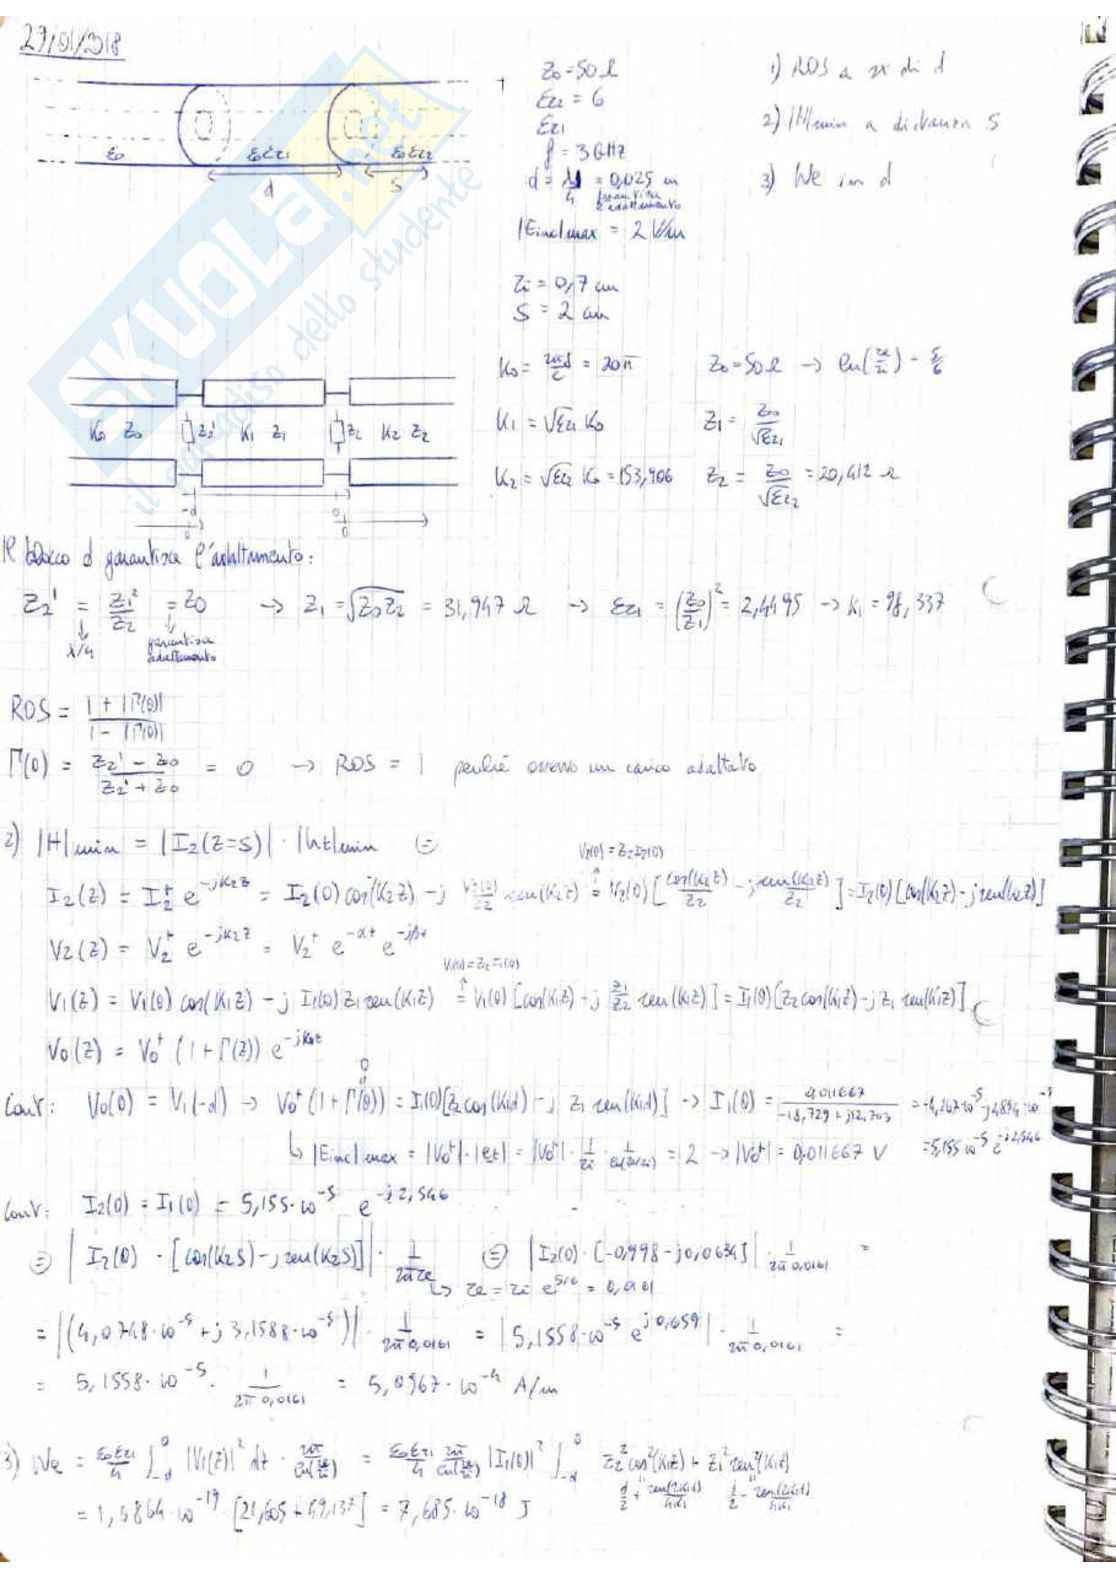 29/01/2018
Z0 = 50 Ω
εr2 = 6
εr1
f = 3 GHz
d = λ1/4 = 0,025 m
garantisce adattamento
|Einc|max = 2 V/m
1) ROS a sx di d
2) |H|min a distanza S
3) We in d
ε0 ε0εr1 ε0εr2
d S
ri = 0,7 cm
S = 2 cm
K0 = 2πf/c = 20π
Z0 = 50 Ω → ln(re/ri) = 5/6
K1 = √εr1 K0
Z1 = Z0/√εr1
K2 = √εr2 K0 = 153,906
Z2 = Z0/√εr2 = 20,412 Ω
K0 Z0 Z2' K1 Z1 Z2 K2 Z2
-d 0
0 0
Il blocco d garantisce l'adattamento:
Z2' = Z1²/Z2 = Z0 → Z1 = √Z0Z2 = 31,947 Ω → εr1 = (Z0/Z1)² = 2,4495 → K1 = 98,337
λ/4 garantisce adattamento
ROS = 1 + |Γ(0)| / 1 - |Γ(0)|
Γ(0) = Z2' - Z0 / Z2' + Z0 = 0 → ROS = 1 perché ovvero un carico adattato
2) |H|min = |I2(z=S)| · |ht|min ⊜
V2(0) = Z2 I2(0)
I2(z) = I2+ e^-jK2z = I2(0) cos(K2z) - j V2(0)/Z2 sen(K2z) = V2(0) [cos(K2z)/Z2 - j sen(K2z)/Z2] = I2(0) [cos(K2z) - j sen(K2z)]
V2(z) = V2+ e^-jK2z = V2+ e^-αz e^-jβz
V1(0) = Z2 I1(0)
V1(z) = V1(0) cos(K1z) - j I1(0) Z1 sen(K1z) = V1(0) [cos(K1z) - j Z1/Z2 sen(K1z)] = I1(0) [Z2 cos(K1z) - j Z1 sen(K1z)]
V0(z) = V0+ (1 + Γ(z)) e^-jK0z
0
Cont: V0(0) = V1(-d) → V0+ (1 + Γ(0)) = I1(0) [Z2 cos(K1d) - j Z1 sen(K1d)] → I1(0) = 0,011667 / -15,729 + j12,703 = -4,267·10^-5 - j2,894·10^-5
↳ |Einc|max = |V0+| · |et| = |V0+| · 1/ri · 1/ln(re/ri) = 2 → |V0+| = 0,011667 V = 5,155·10^-5 e^-j2,546
Cont: I2(0) = I1(0) = 5,155·10^-5 e^-j2,546
⊜ |I2(0) · [cos(K2S) - j sen(K2S)]| · 1/2πre ⊜ |I2(0) · [-0,998 - j0,0634]| · 1/2π 0,0161 =
↳ re = ri e^5/6 = 0,0161
= |(4,0748·10^-5 + j 3,1588·10^-5)| · 1/2π 0,0161 = |5,1558·10^-5 e^j0,659| · 1/2π 0,0161 =
= 5,1558·10^-5 · 1/2π 0,0161 = 5,0967·10^-4 A/m
3) We = ε0εr1/4 ∫-d 0 |V1(z)|² dz · 2π/ln(re/ri) = ε0εr1/4 2π/ln(re/ri) |I1(0)|² ∫-d 0 Z2² cos²(K1z) + Z1² sen²(K1z)
d/2 + sen(2K1d)/4K1 d/2 - sen(2K1d)/4K1
= 1,4864·10^-19 [21,605 + 49,137] = 7,685·10^-18 J
SKUOLA.net
il paradiso dello studente